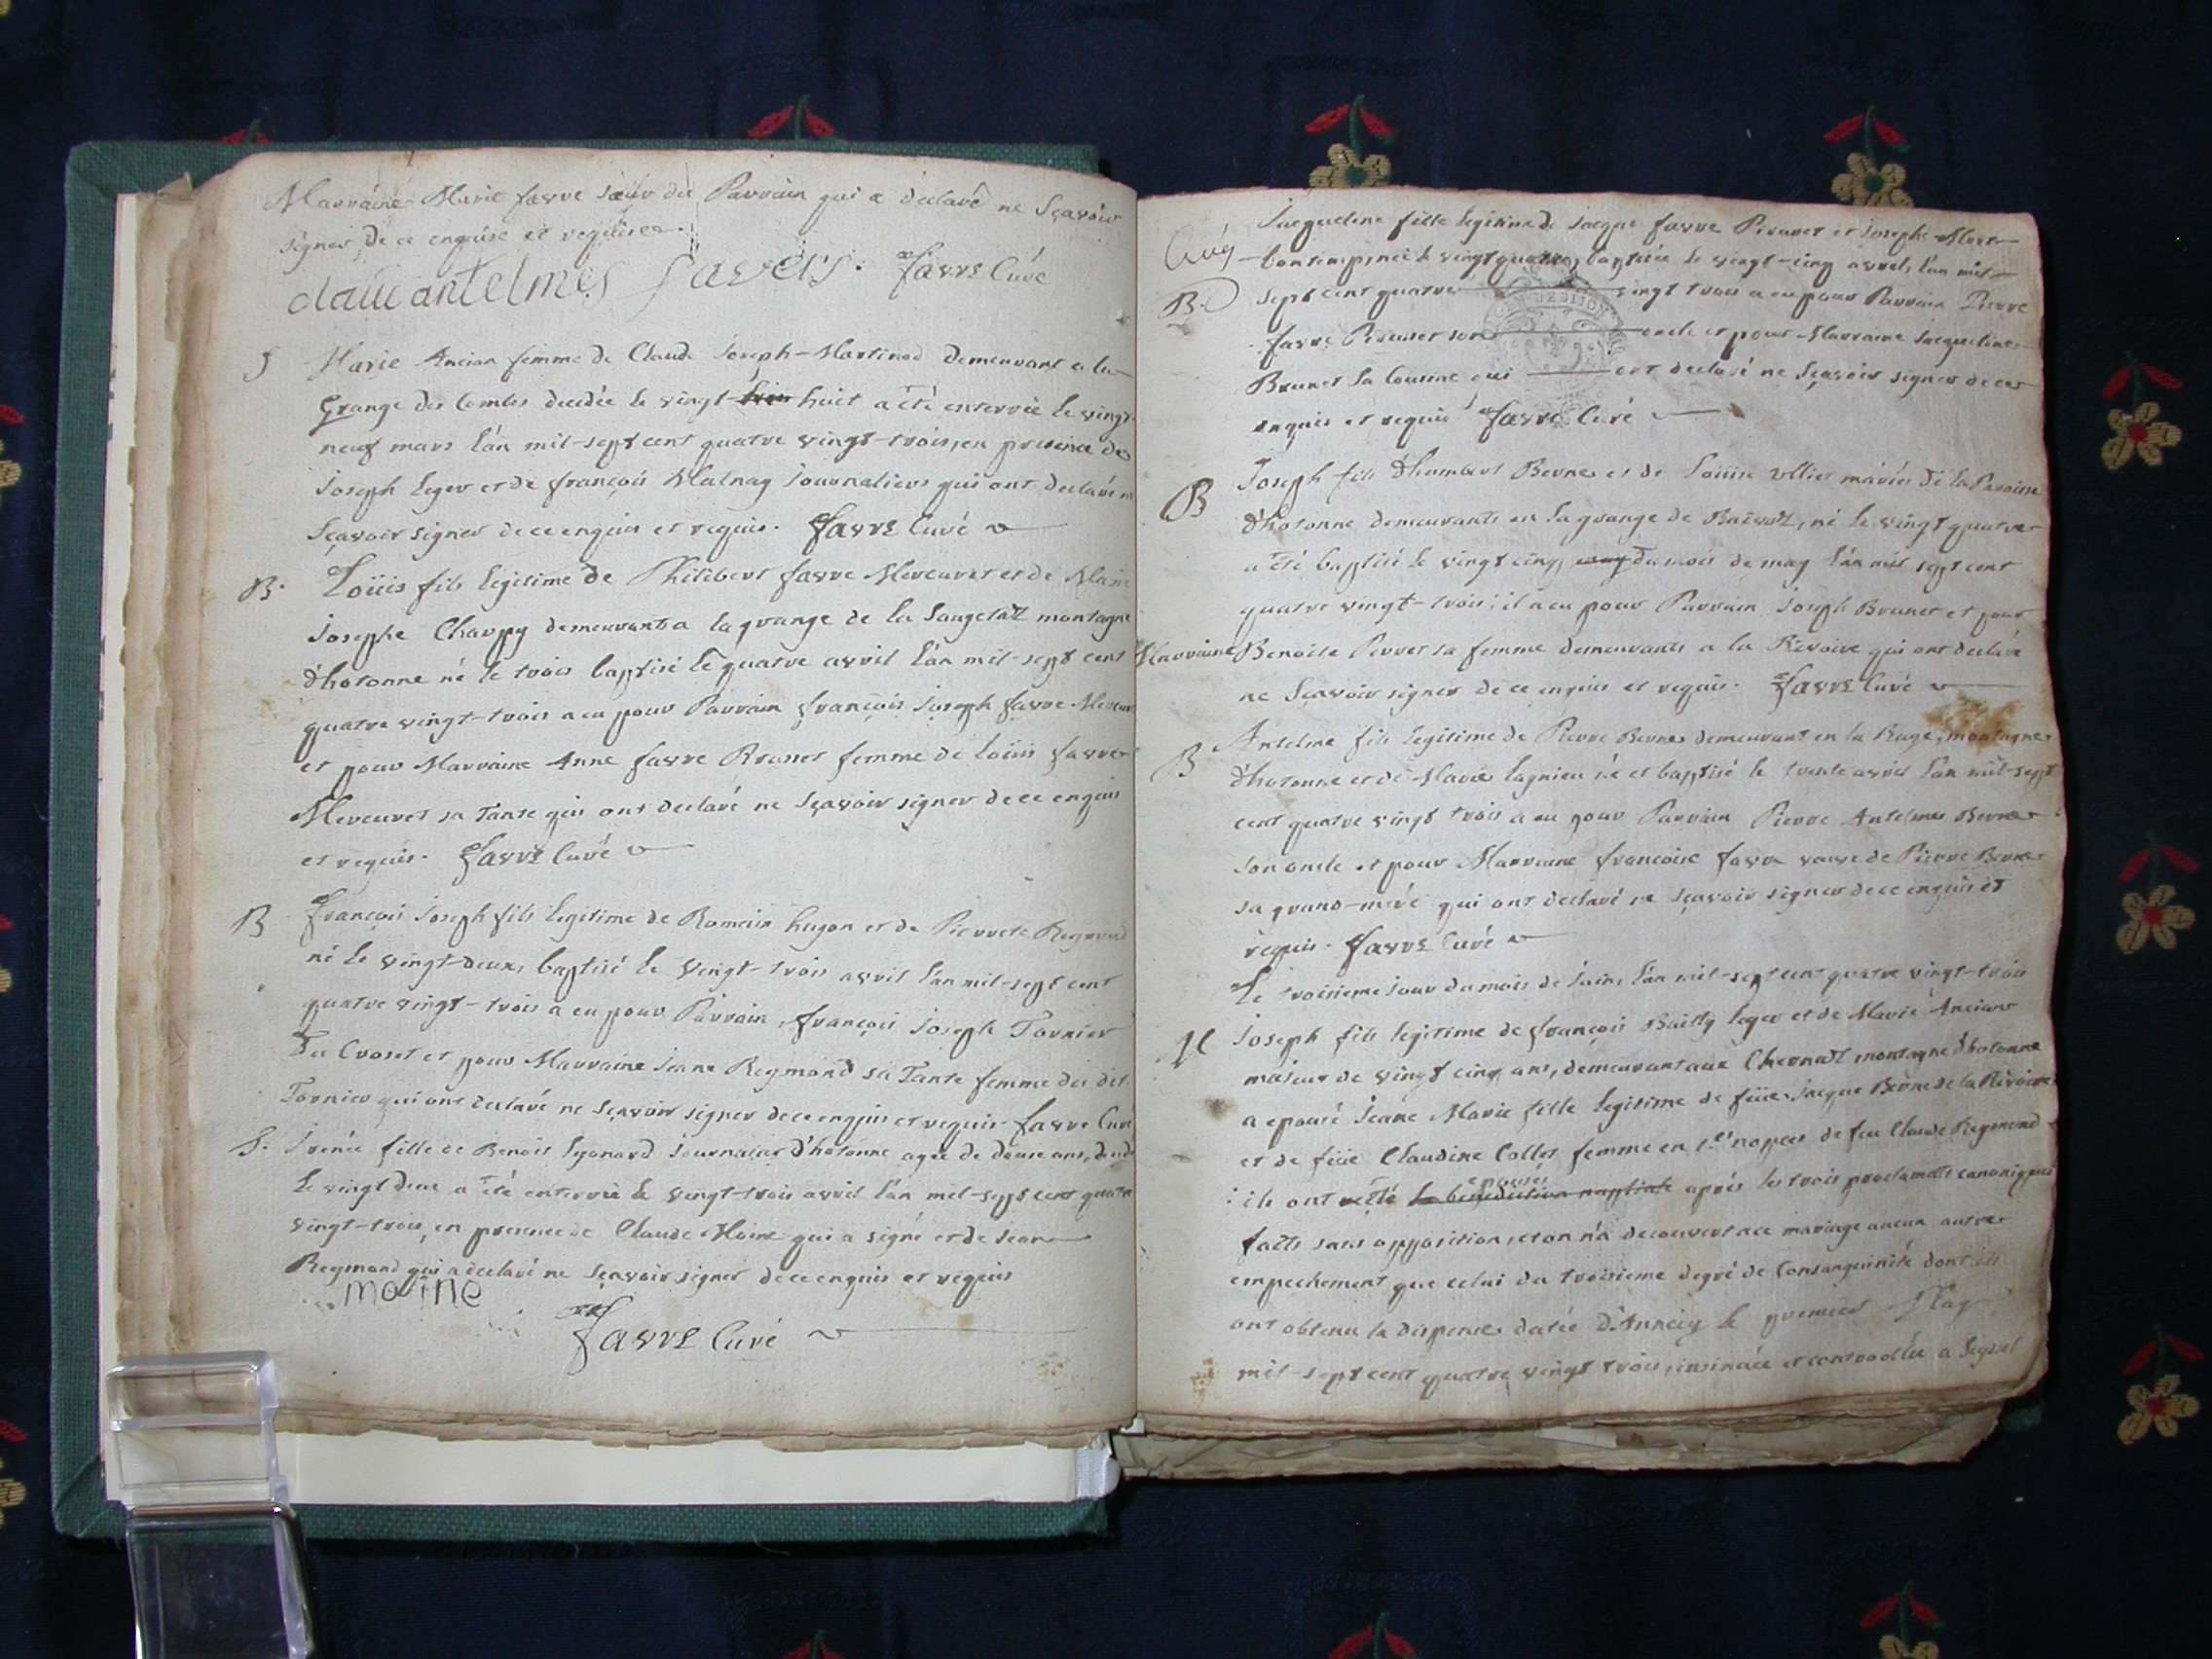 Marraine Marie favre sœur du Parrain qui a déclaré ne Sçavoir
signer, de ce enquise et requise.
claude antelmes favers. favre Curé
S Marie Ancian femme de Claude Joseph-Martinod demeurant a la
Grange des Combes decédée le vingt-trois huit a été enterrée le vingt
neuf mars l'an mil-sept cent quatre vingt-trois, en presence de
Joseph Leger et de françois Malnay Journaliers qui ont declaré ne
Sçavoir signer de ce enquis et requis. favre Curé
B. Loüis fils légitime de Philibert favre Mercuret et de Marie
Josephe Charpy demeurants a la grange de la Saugetaz montagne
d'hotonne né le trois baptisé le quatre avril l'an mil-sept cent
quatre vingt-trois a eu pour Parrain françois Joseph favre Mercuret
et pour Marraine Anne favre Brunet femme de Loüis favre
Mercuret sa Tante qui ont declaré ne Sçavoir signer de ce enquis
et requis. favre Curé
B françois Joseph fils legitime de Romain hugon et de Pierrete Reymond
né le vingt-deux, baptisé le vingt-trois avril l'an mil-sept cent
quatre vingt-trois a eu pour Parrain, françois Joseph Tornier
Du Croset et pour Marraine Jeane Reymond sa Tante femme du dit
Tornier qui ont declaré ne Sçavoir signer de ce enquis et requis favre Curé
S. Irenée fille de Benoit Lyonard Journalier d'hotonne agée de douse ans, decedée
le vingt deux a été enterrée le vingt-trois avril l'an mil-sept cent quatre
vingt-trois, en presence de Claude Moine qui a signé et de Jean
Reymond qui a declaré ne Sçavoir signer de ce enquis et requis
moine
favre Curé
Jacqueline fille legitime de Jacque favre Pirunet et Josephe Marie
Bontemps, née le vingt quatre, baptisée le vingt-cinq avril, l'an mil
B. sept cent quatre vingt trois a eu pour Parrain Pierre
favre Pirunet son oncle et pour Marraine Jacqueline
Brunet sa Cousine qui ont declaré ne Sçavoir signer de ce
enquis et requis favre Curé
B Joseph fils d'humbert Berne et de Loüise Ullier mariés de la Paroisse
d'hotonne demeurants en la grange de , né le vingt quatre
a été baptisé le vingt cinq may du mois de may l'an mil sept cent
quatre vingt-trois; il a eu pour Parrain Joseph Brunet et pour
Marraine Benoite Perret sa femme demeurants a la Rivoire qui ont declaré
ne Sçavoir signer de ce enquis et requis. favre Curé
B Antelme fils legitime de Pierre Berne demeurant en la Ruge, montagne
d'hotonne et de Marie Lagnieu né et baptisé le trente avril l'an mil-sept
cent quatre vingt trois a eu pour Parrain Pierre Antelme Berne
son oncle et pour Marraine francoise favre veuve de Pierre Berne
sa grand-mére qui ont declaré ne sçavoir signer de ce enquis et
requis. favre Curé
Le troisieme jour du mois de Juin, l'an mil-sept cent quatre vingt-trois
M Joseph fils legitime de françois Bailly Leger et de Marie Ancian
majeur de vingt cinq ans, demeurant aux montagne d'hotonne
a epousé Jeane Marie fille legitime de feüe Jacque Berne de la Rivoire
et de feüe Claudine Collet femme en 1.eres nopces de feu Claude Reymond
epousés
ils ont été la benediction nuptiale aprés les trois proclamats canoniques
faits sans opposition, et on n'a decouvert a ce mariage aucun autre
empechement que celui du troisieme degré de Consanguinité dont ils
ont obtenu la dispense datée d'Annecy le premier May
mil-sept cent quatre vingt trois, insinuée et controllée a Seyssel